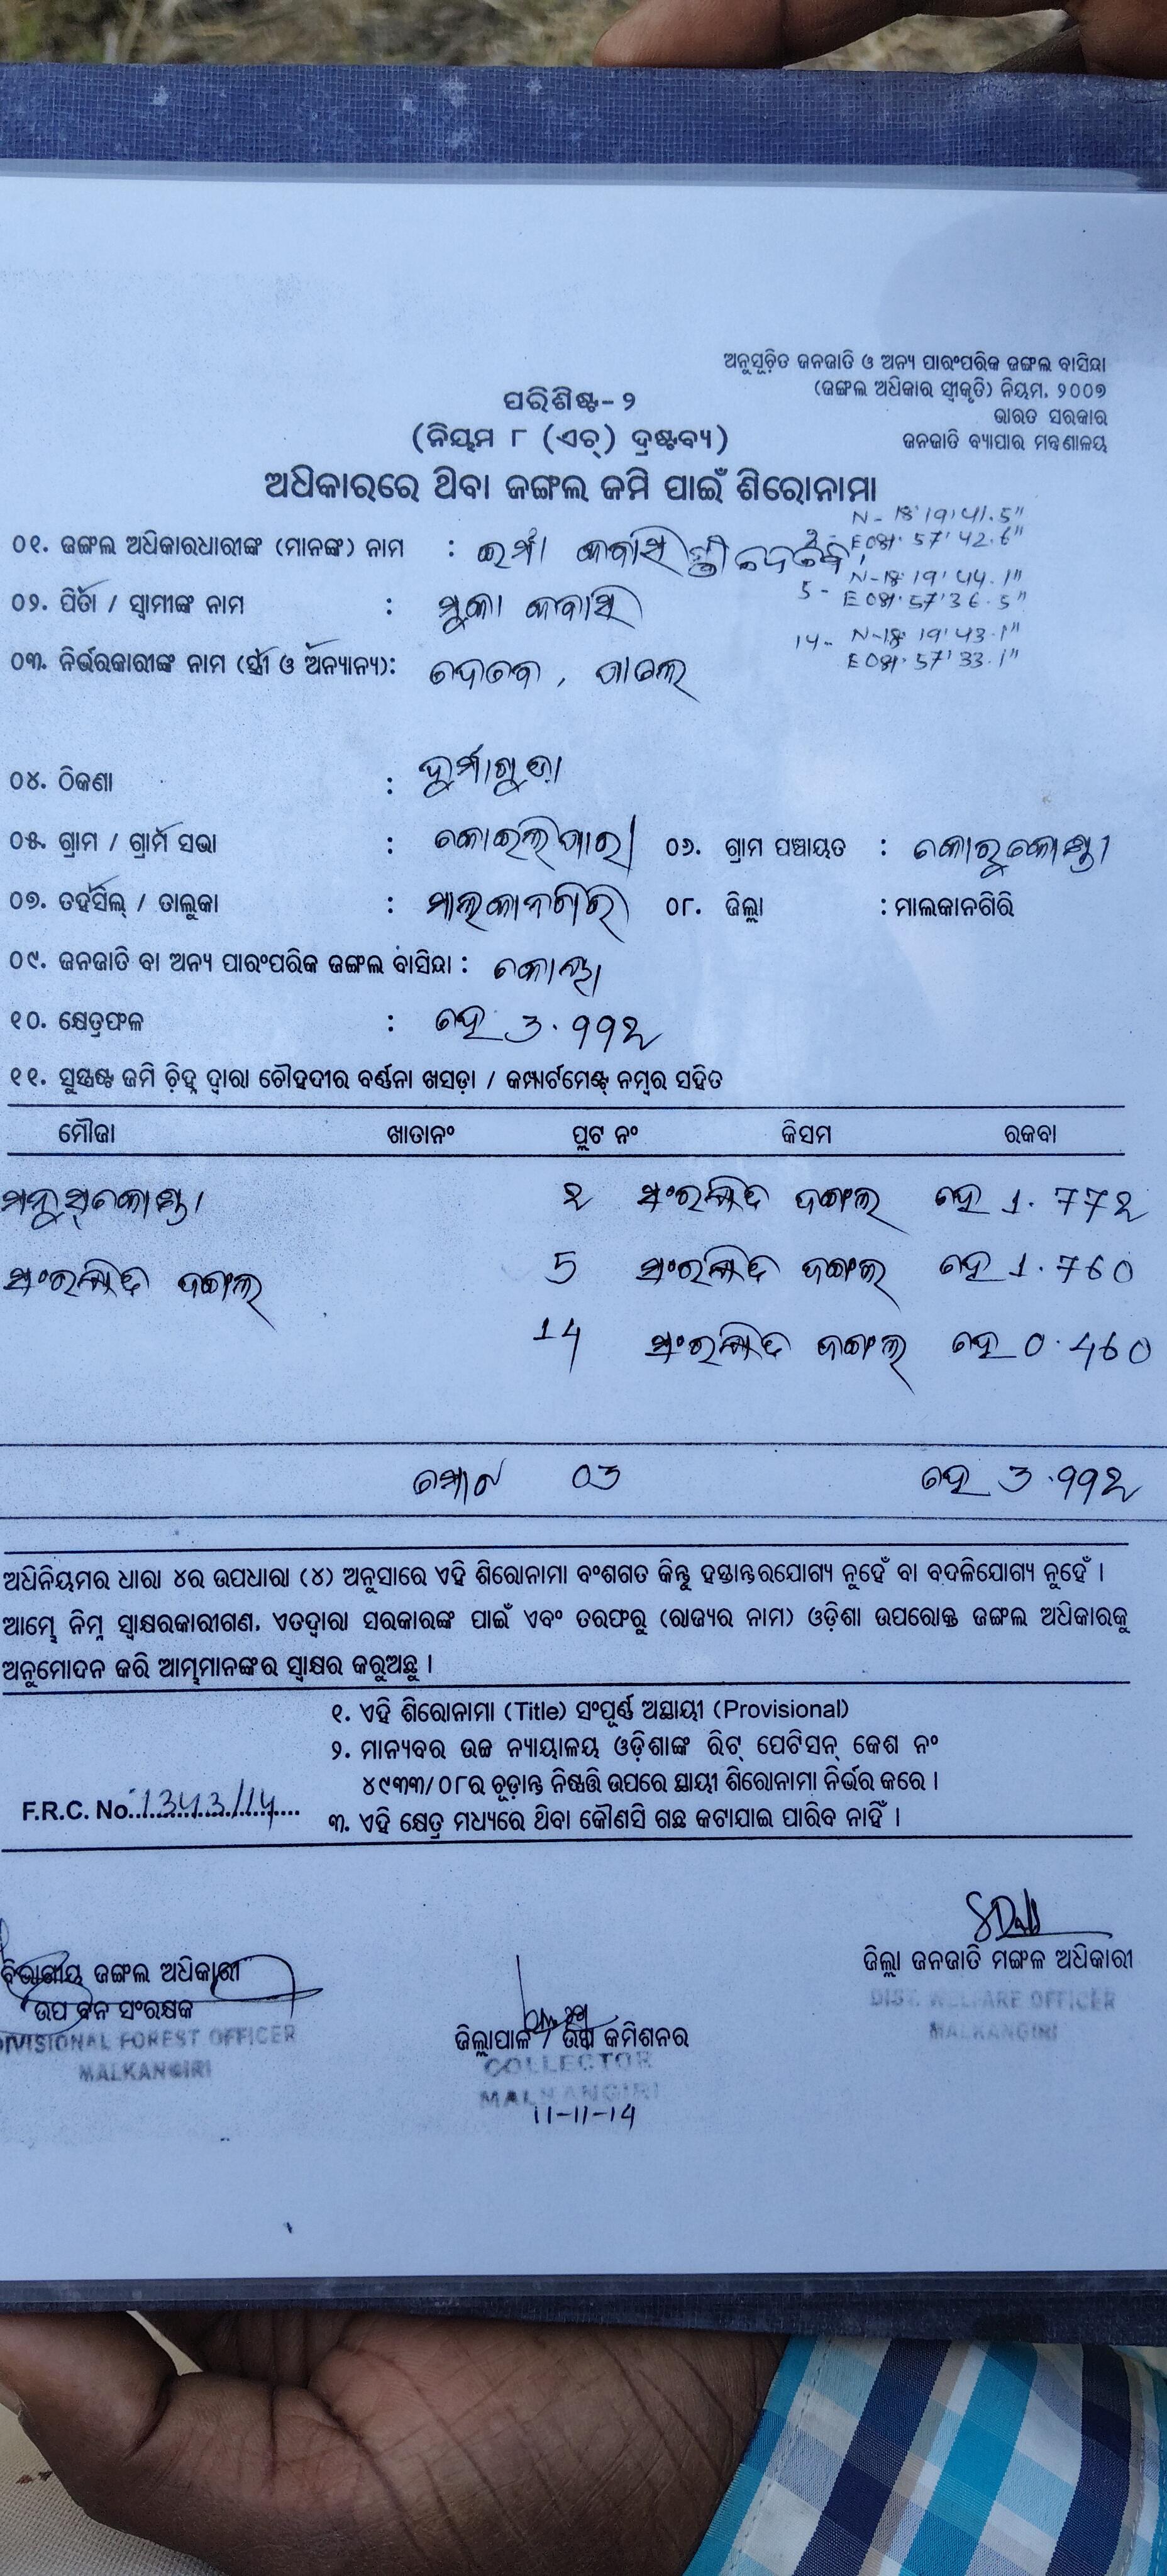 ଅନୁସୂଚିତ ଜନଜାତି ଓ ଅନ୍ୟ ପାରଂପରିକ ଜଙ୍ଗଲ ବାସିନ୍ଦା
(ଜଙ୍ଗଲ ଅଧିକାର ସ୍ୱୀକୃତି) ନିୟମ, ୨୦୦୭
ଭାରତ ସରକାର
ଜନଜାତି ବ୍ୟାପାର ମନ୍ତ୍ରଣାଳୟ
ପରିଶିଷ୍ଟ- ୨
(ନିୟମ ୮ (ଏଚ୍) ଦ୍ରଷ୍ଟବ୍ୟ)
ଅଧିକାରରେ ଥିବା ଜଙ୍ଗଲ ଜମି ପାଇଁ ଶିରୋନାମା
N- 18°19'41.5"
E081°57'42.6"
5 - N-18°19'44.1"
E081°57'36.5"
14- N-18°19'43.1"
E081°57'33.1"
୦୧. ଜଙ୍ଗଲ ଅଧିକାରଧାରୀଙ୍କ (ମାନଙ୍କ) ନାମ : କବାସି ସ୍ତ୍ରୀ ଦେବେ
୦୨. ପିତା / ସ୍ୱାମୀଙ୍କ ନାମ : ମୁକା କବାସି
୦୩. ନିର୍ଭରକାରୀଙ୍କ ନାମ (ସ୍ତ୍ରୀ ଓ ଅନ୍ୟାନ୍ୟ):
୦୪. ଠିକଣା : ଦୁର୍ମାଗୁଡ଼ା
୦୫. ଗ୍ରାମ / ଗ୍ରାମ ସଭା : ୦୬. ଗ୍ରାମ ପଞ୍ଚାୟତ : କୋରୁକୋଣ୍ଡା
୦୭. ତହସିଲ୍ / ତାଲୁକା : ମାଲକାନଗିରି ୦୮. ଜିଲ୍ଲା : ମାଲକାନଗିରି
୦୯. ଜନଜାତି ବା ଅନ୍ୟ ପାରଂପରିକ ଜଙ୍ଗଲ ବାସିନ୍ଦା : କୋୟା
୧୦. କ୍ଷେତ୍ରଫଳ : ହେ 3.୨୨୨
୧୧. ସୁସ୍ପଷ୍ଟ ଜମି ଚିହ୍ନ ଦ୍ୱାରା ଚୌହଦୀର ବର୍ଣ୍ଣନା ଖସଡ଼ା / କମ୍ପାର୍ଟମେଣ୍ଟ୍ ନମ୍ବର ସହିତ
ମୌଜା ଖାତାନଂ ପ୍ଲଟ ନଂ କିସମ ରକବା
2 ସଂରକ୍ଷିତ ଜଙ୍ଗଲ ହେ 1.772
ସଂରକ୍ଷିତ ଜଙ୍ଗଲ 5 ସଂରକ୍ଷିତ ଜଙ୍ଗଲ ହେ 1.760
14 ସଂରକ୍ଷିତ ଜଙ୍ଗଲ ହେ 0.460
ମୋଟ 03 ହେ 3.୨୨୨
ଅଧିନିୟମର ଧାରା ୪ର ଉପଧାରା (୪) ଅନୁସାରେ ଏହି ଶିରୋନାମା ବଂଶଗତ କିନ୍ତୁ ହସ୍ତାନ୍ତରଯୋଗ୍ୟ ନୁହେଁ ବା ବଦଳିଯୋଗ୍ୟ ନୁହେଁ ।
ଆମ୍ଭେ ନିମ୍ନ ସ୍ୱାକ୍ଷରକାରୀଗଣ, ଏତଦ୍ୱାରା ସରକାରଙ୍କ ପାଇଁ ଏବଂ ତରଫରୁ (ରାଜ୍ୟର ନାମ) ଓଡ଼ିଶା ଉପରୋକ୍ତ ଜଙ୍ଗଲ ଅଧିକାରକୁ
ଅନୁମୋଦନ କରି ଆମ୍ଭମାନଙ୍କର ସ୍ୱାକ୍ଷର କରୁଅଛୁ ।
୧. ଏହି ଶିରୋନାମା (Title) ସଂପୂର୍ଣ୍ଣ ଅସ୍ଥାୟୀ (Provisional)
୨. ମାନ୍ୟବର ଉଚ୍ଚ ନ୍ୟାୟାଳୟ ଓଡ଼ିଶାଙ୍କ ରିଟ୍ ପେଟିସନ୍ କେଶ ନଂ
୪୯୩୩/୦୮ର ଚୂଡ଼ାନ୍ତ ନିଷ୍ପତ୍ତି ଉପରେ ସ୍ଥାୟୀ ଶିରୋନାମା ନିର୍ଭର କରେ ।
F.R.C. No. 1343/14
୩. ଏହି କ୍ଷେତ୍ର ମଧ୍ୟରେ ଥିବା କୌଣସି ଗଛ କଟାଯାଇ ପାରିବ ନାହିଁ ।
ବିଭାଗୀୟ ଜଙ୍ଗଲ ଅଧିକାରୀ
ଉପ ବନ ସଂରକ୍ଷକ
DIVISIONAL FOREST OFFICER
MALKANGIRI
ଜିଲ୍ଲାପାଳ / ଉପ କମିଶନର
COLLECTOR
MALKANGIRI
11-11-14
ଜିଲ୍ଲା ଜନଜାତି ମଙ୍ଗଳ ଅଧିକାରୀ
DIST. WELFARE OFFICER
MALKANGIRI